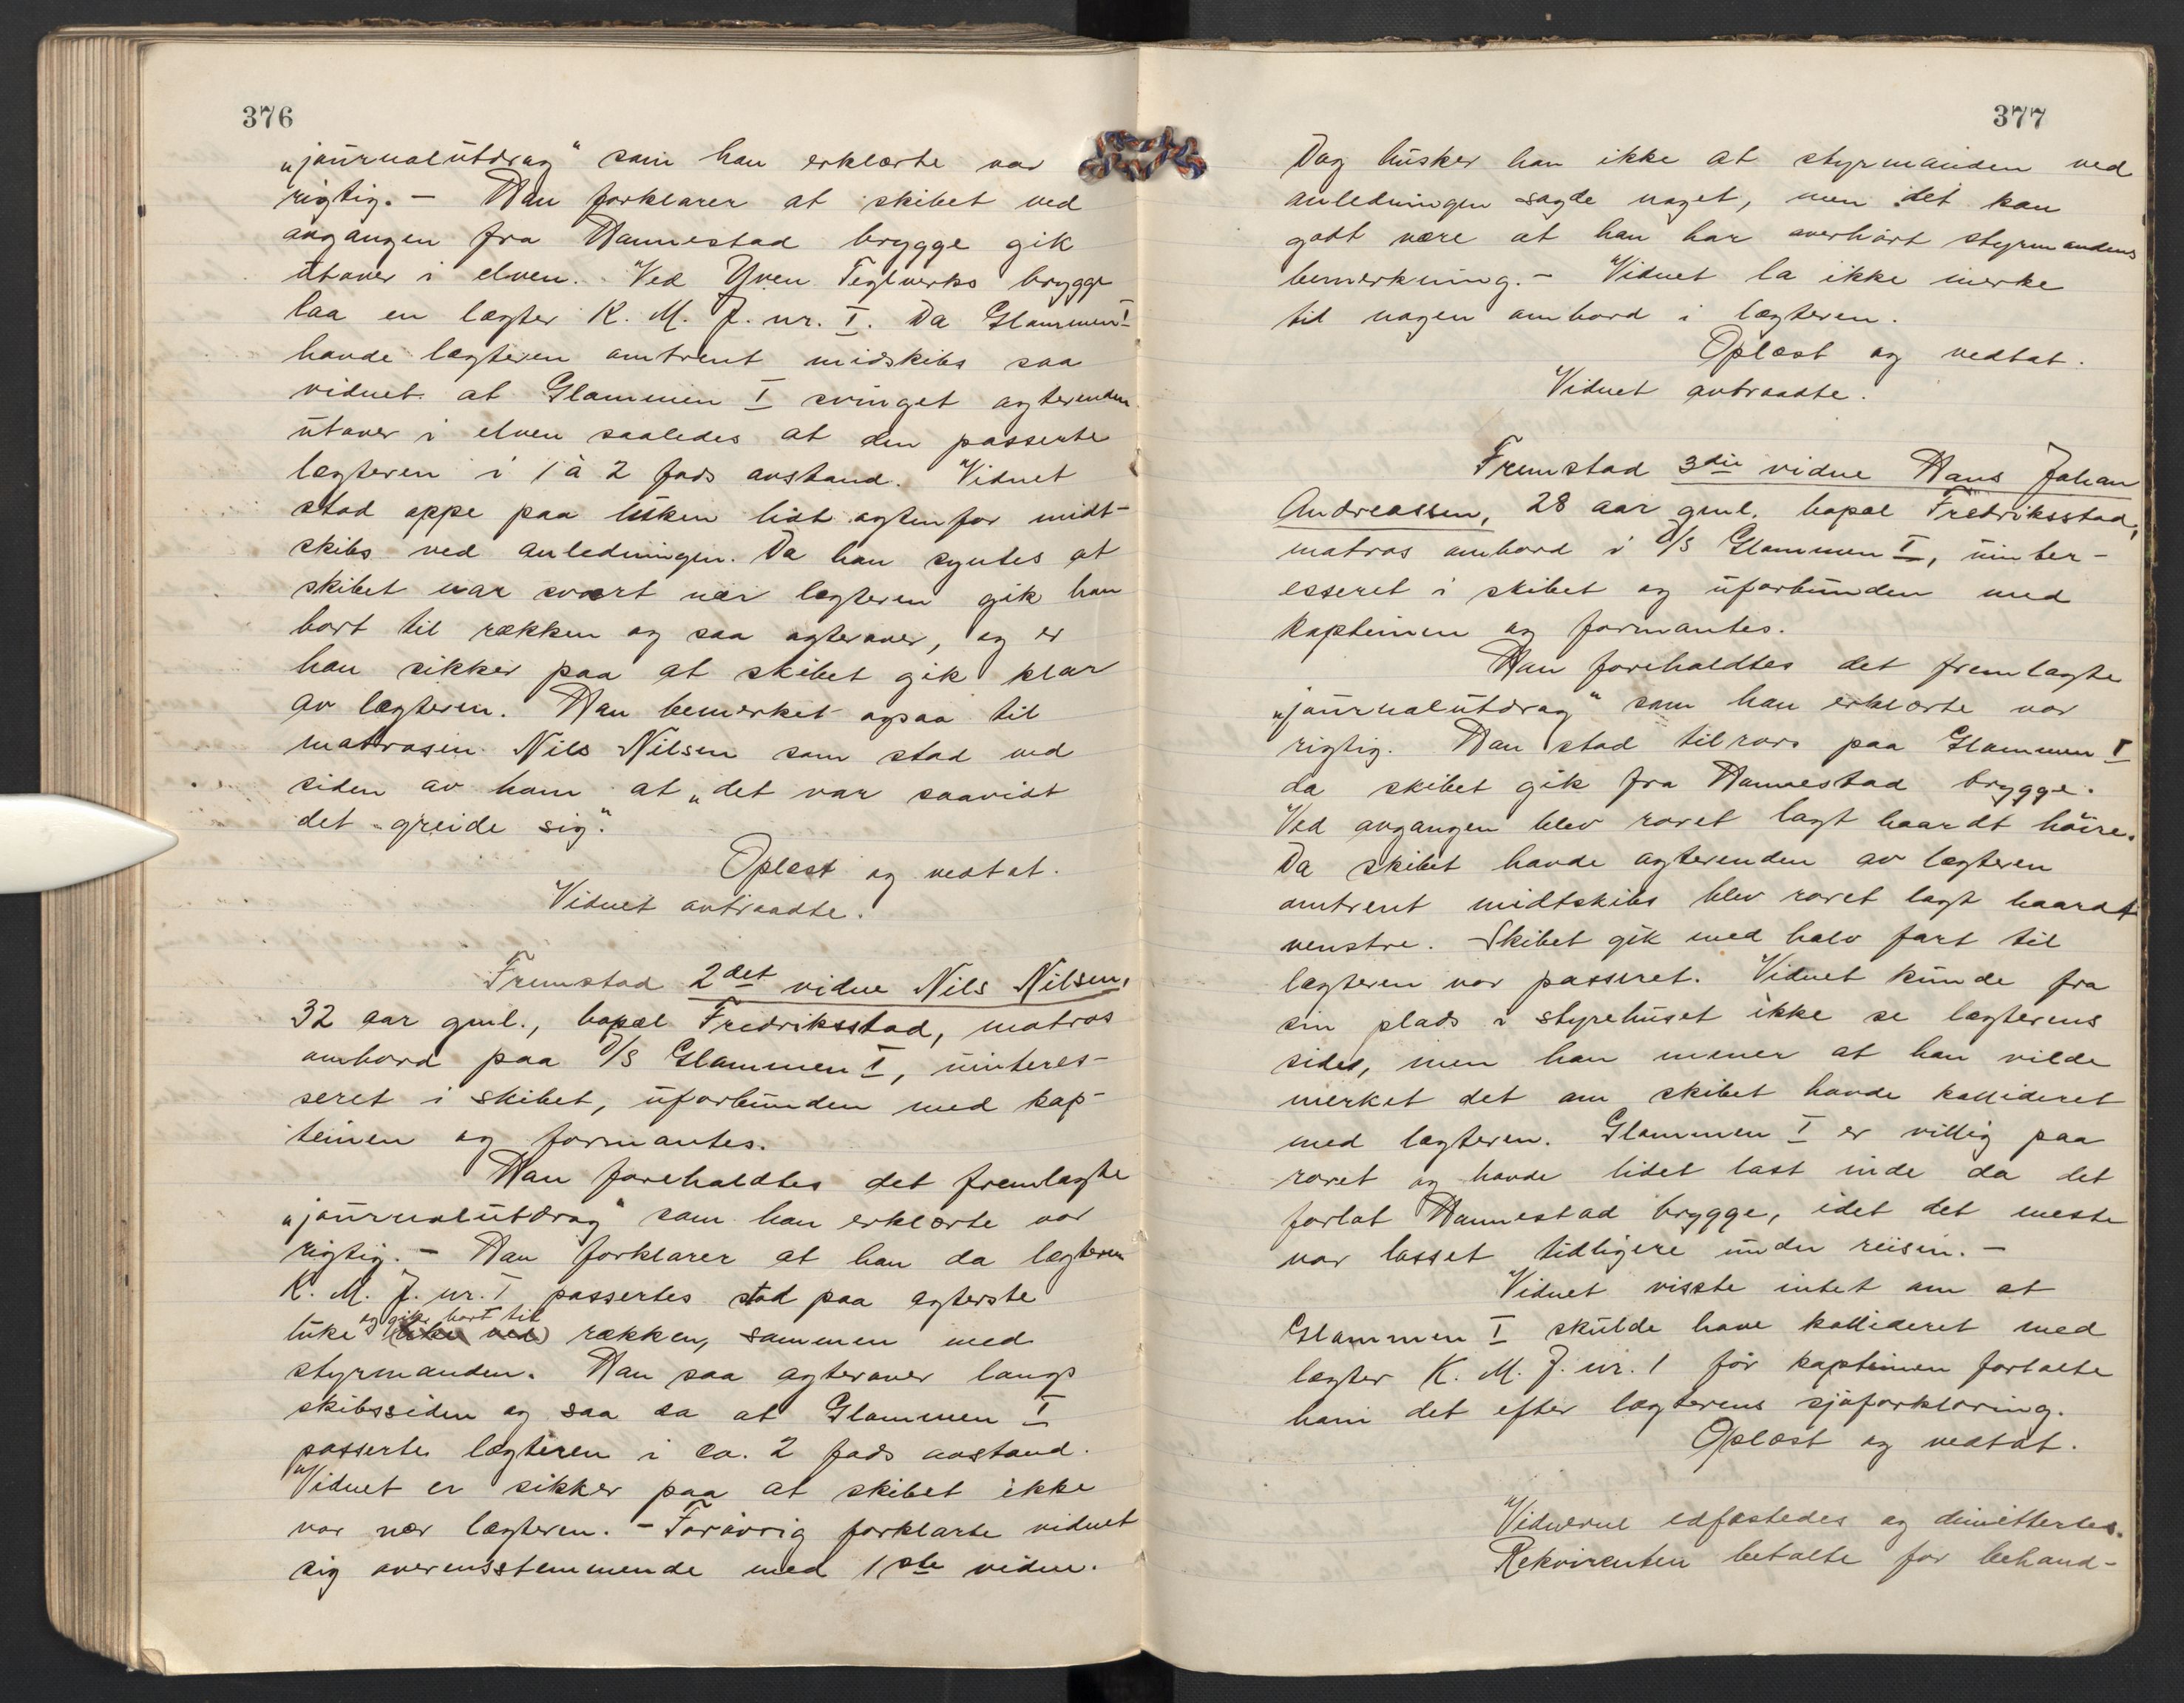 376
„journalutdrag“ som han erklærte var
rigtig. — Han forklarer at skibet ved
avgangen fra Hannestad brygge gik
utover i elven. Ved Yven Teglverks brygge
laa en lægter K. M. J. nr. I. Da Glommen I
havde lægteren omtrent midskibs saa
vidnet at Glommen I svinget agterenden
utover i elven saaledes at den passerte
lægteren i 1 à 2 fods avstand. Vidnet
stod oppe paa luken lidt agtenfor midt-
skibs ved anledningen. Da han syntes at
skibet var svært nær lægteren gik han
bort til rækken og saa agterover, og er
han sikker paa at skibet gik klar
av lægteren. Han bemerket ogsaa til
matrosen Nils Nilsen som stod ved
siden av ham at „det var saavidt
det greide sig“.
Oplæst og vedtat.
Vidnet avtraadte.
Fremstod 2det vidne Nils Nilsen,
32 aar gml., bopæl Fredriksstad, matros
ombord paa D/S Glommen I, uinteres-
seret i skibet, uforbunden med kap-
teinen og formantes.
Han foreholdtes det fremlagte
„journalutdrag“ som han erklærte var
rigtig. — Han forklarer at han da lægteren
K. M. J. nr. I passertes stod paa agterste
og gik bort til
luke (luke ved) rækken, sammen med
styrmanden. Han saa agterover langs
skibssiden og saa da at Glommen I
passerte lægteren i ca. 2 fods avstand.
Vidnet er sikker paa at skibet ikke
var nær lægteren. — Forøvrig forklarte vidnet
sig overensstemmende med 1ste vidne.
377
Dog husker han ikke at styrmanden ved
anledningen sagde noget, men det kan
godt være at han har overhørt styrmandens
bemerkning. — Vidnet la ikke merke
til nogen ombord i lægteren.
Oplæst og vedtat.
Vidnet avtraadte.
Fremstod 3die vidne Hans Johan
Andreassen, 28 aar gml. bopæl Fredriksstad,
matros ombord i D/S Glommen I, uinter-
esseret i skibet og uforbunden med
kapteinen og formantes.
Han foreholdtes det fremlagte
„journalutdrag“ som han erklærte var
rigtig. Han stod tilrors paa Glommen I
da skibet gik fra Hannestad brygge.
Ved avgangen blev roret lagt haardt høire.
Da skibet havde agterenden av lægteren
omtrent midtskibs blev roret lagt haardt
venstre. Skibet gik med halv fart til
lægteren var passeret. Vidnet kunde fra
sin plads i styrehuset ikke se lægterens
sides, men han mener at han vilde
merket det om skibet havde kollideret
med lægteren. Glommen I er villig paa
roret og havde lidet last inde da det
forlot Hannestad brygge, idet det meste
var losset tidligere under reisen. —
Vidnet visste intet om at
Glommen I skulde have kollideret med
lægter K. M. J. nr. 1 før kapteinen fortalte
ham det efter lægterens sjøforklaring.
Oplæst og vedtat.
Vidnerne edfæstedes og dimittertes.
Rekvirenten betalte for behand-